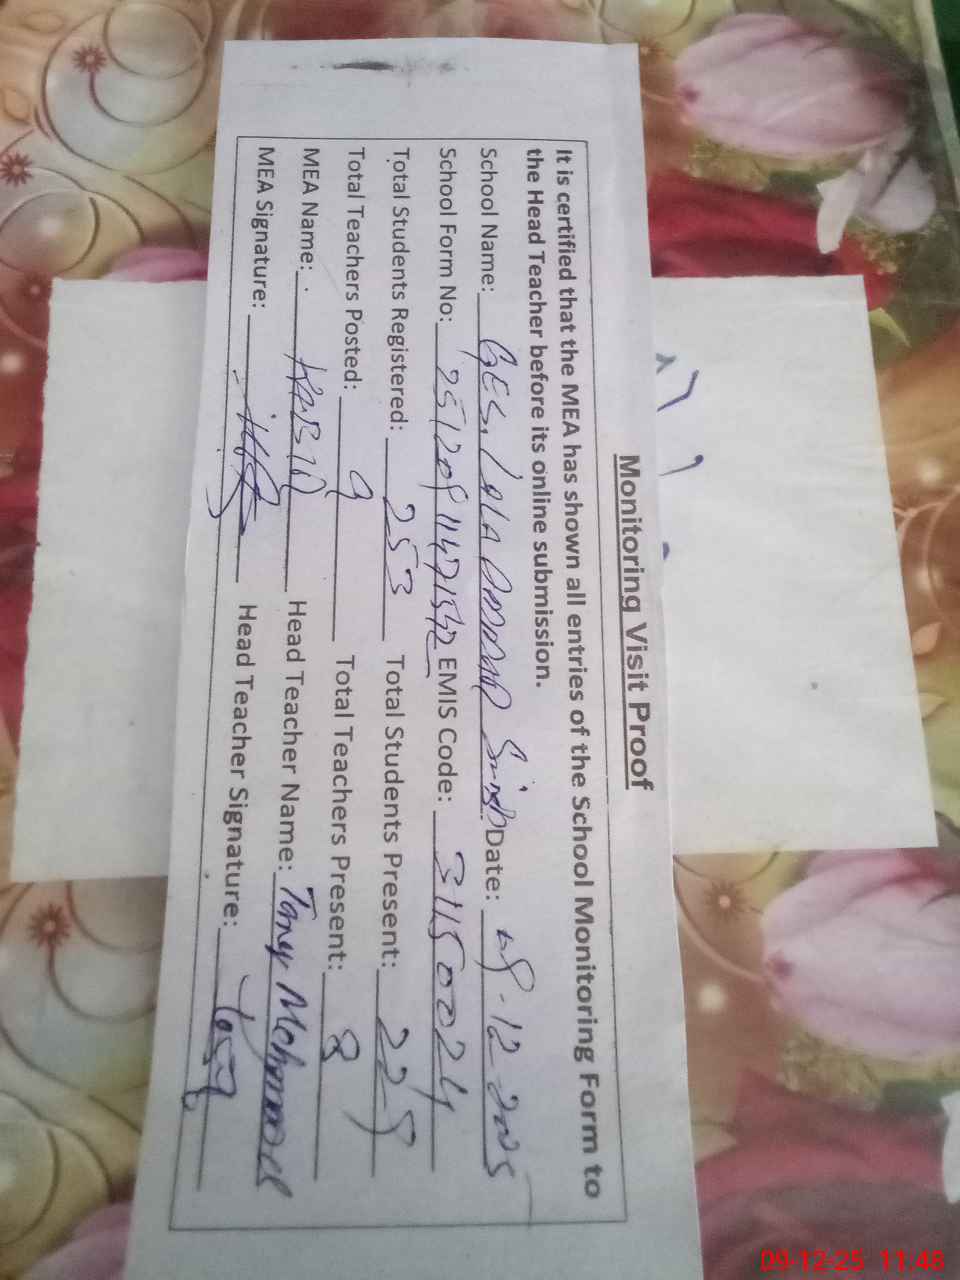 Monitoring Visit Proof
It is certified that the MEA has shown all entries of the School Monitoring Form to
the Head Teacher before its online submission.
School Name: GES, Date: 09-12-2025
School Form No: EMIS Code: 31150024
Total Students Registered: 253 Total Students Present: 229
Total Teachers Posted: 9 Total Teachers Present: 8
MEA Name: Head Teacher Name: Mehmood
MEA Signature: Head Teacher Signature:
09-12-25 11:48